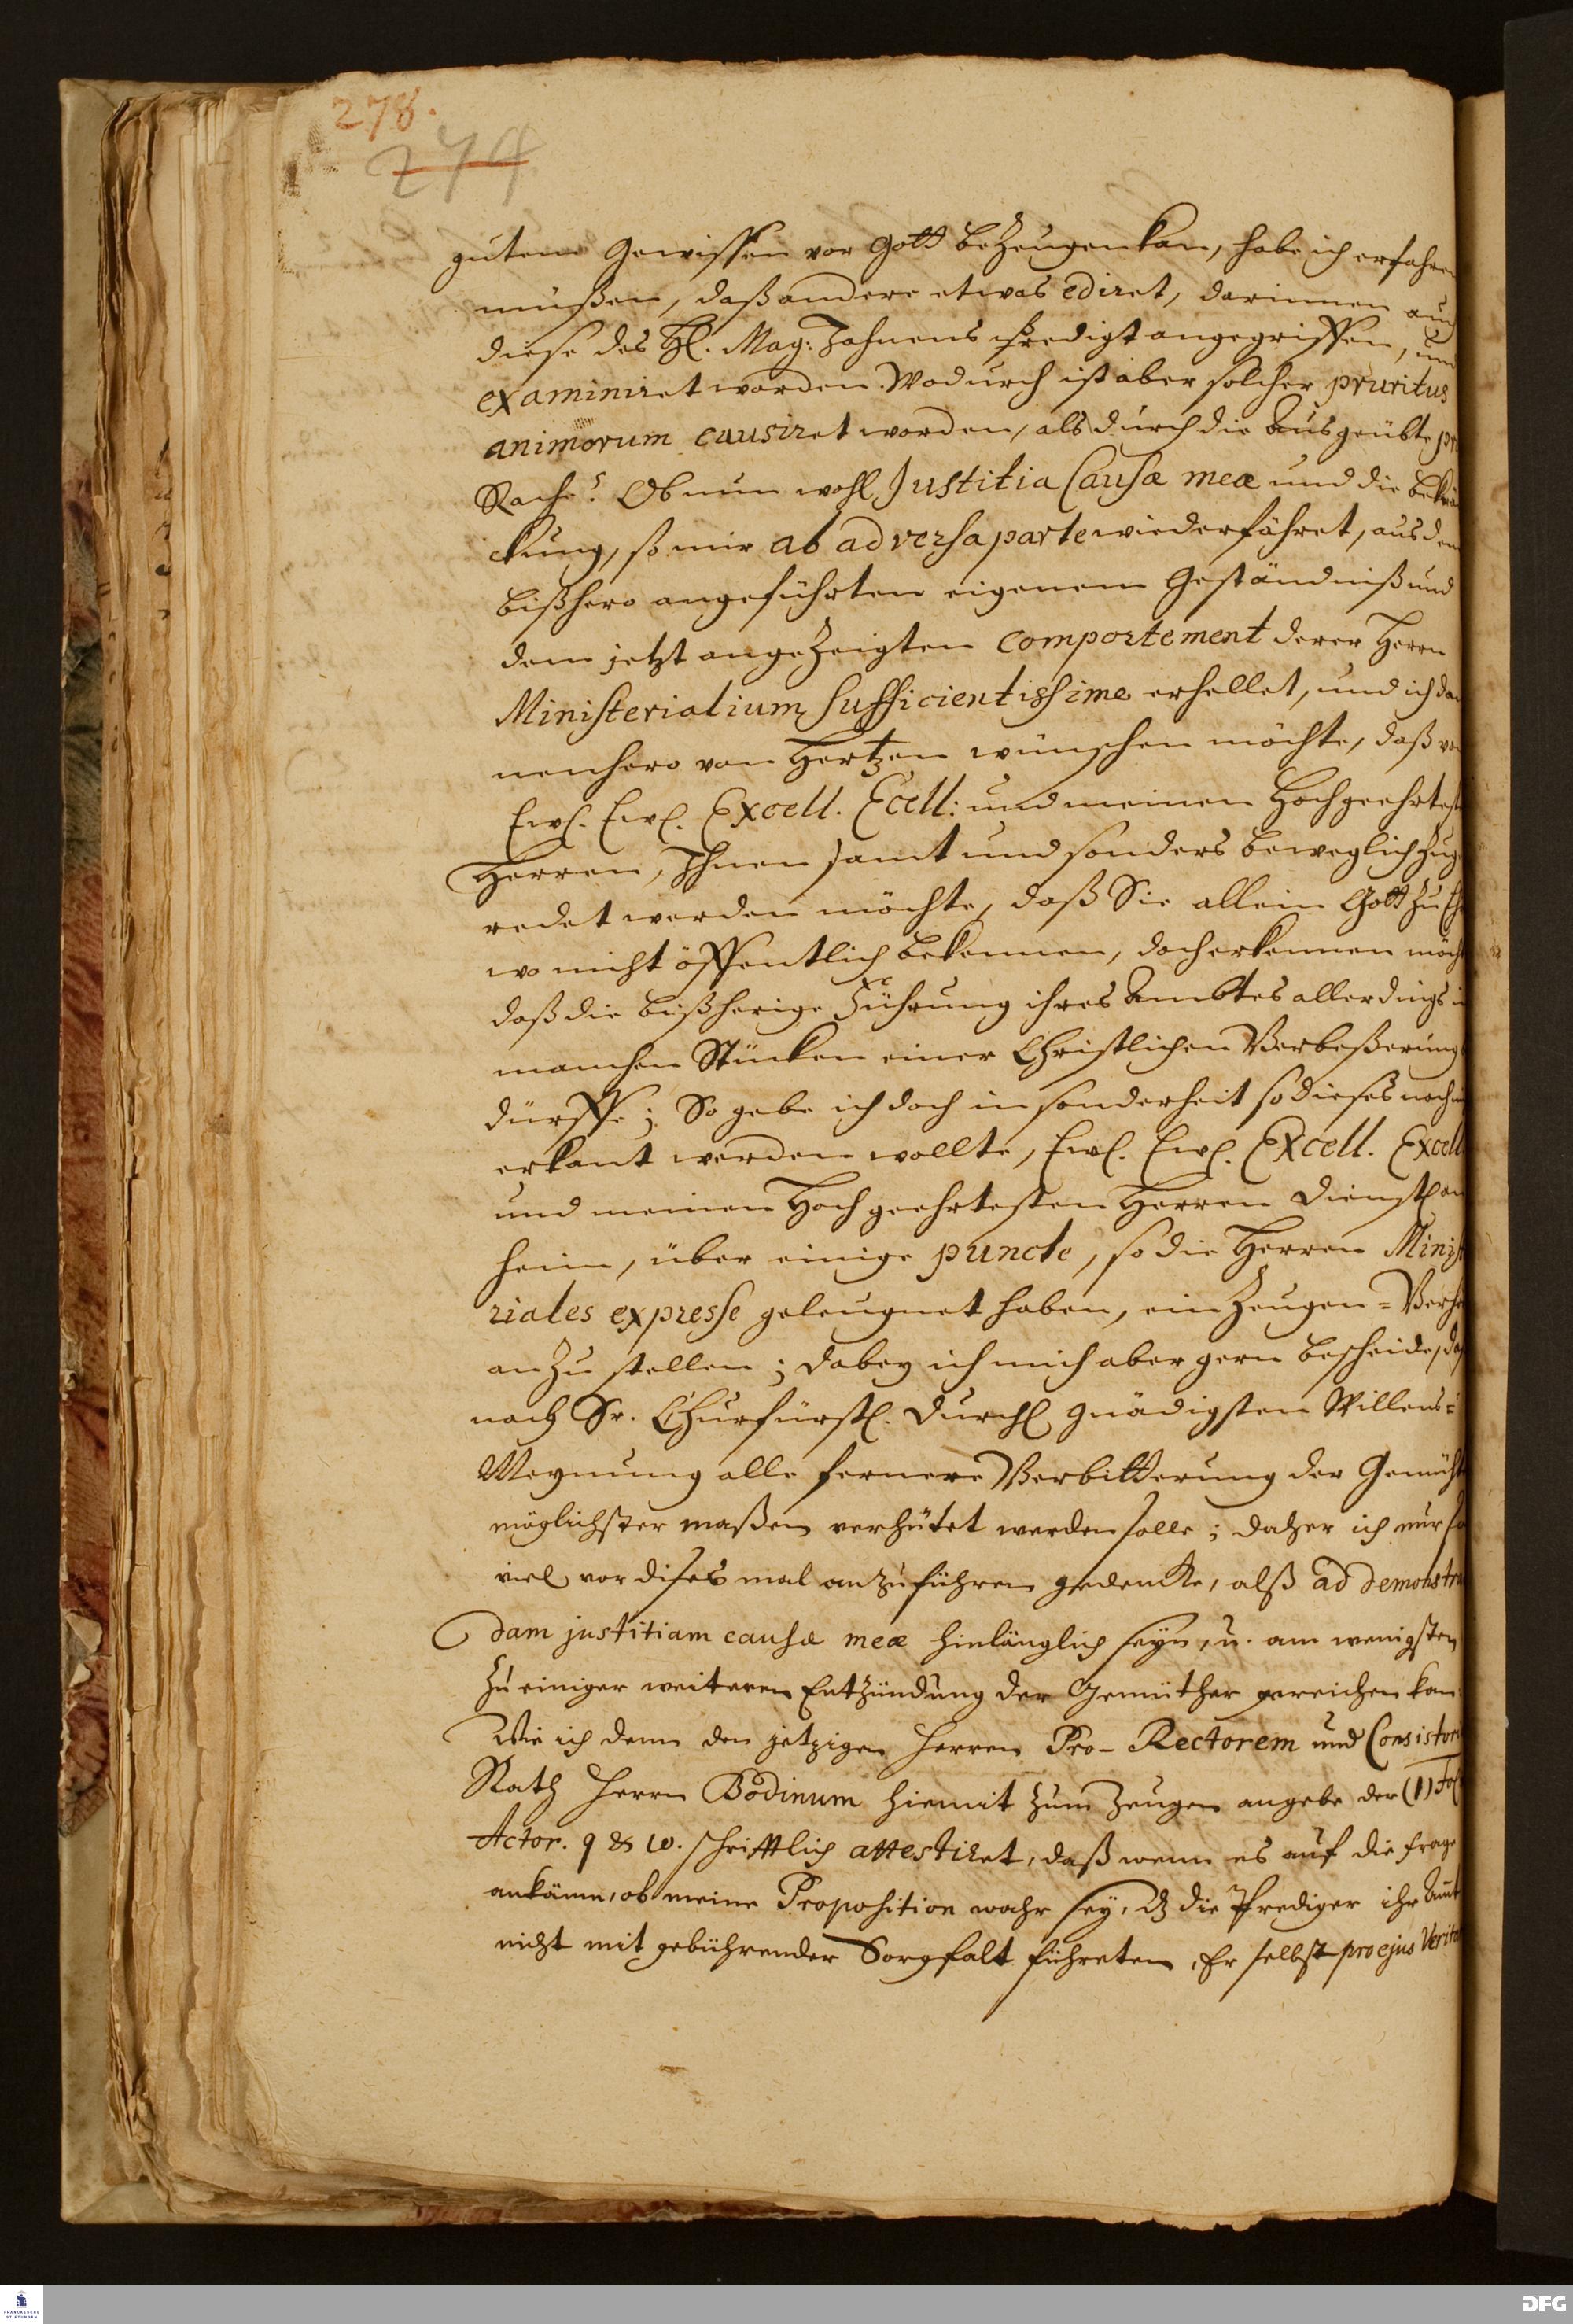 278.
274
gutem Gewissen vor Gott bezeugen kan, habe ich erfahren
müßen, daß andere etwas ediret, darinnen auch
diese des H. Mag: Jahnens Predigt angegriffen, und
examiniret worden. Wodurch ist aber solcher pruritus
animorum causiret worden, als durch die ausgeübte
Rache? Ob nun wohl Justitia Causæ meæ und die
ckung, so mir ab adversa parte wiederfähret, aus dem
bißhero angeführten eigenem Geständniß und
dem jetzt angezeigten comportement derer Herrn
Ministerialium sufficientissime erhellet, und ich dan
nenhero von Hertzen wünschen möchte, daß von
Ewl. Ewl. Excell. Ecell: und meinen Hochgeehrtest
Herren, Ihnen samt und sonders beweglich zuge
redet werden möchte, daß Sie allein Gott zu Eh
wo nicht öffentlich bekennen, doch erkennen möch
daß die bißherige Führung ihres Ambtes allerdings in
manchen Stücken einer Christlichen Verbeßerung
dürffe; So gebe ich doch in sonderheit so dieses noch
erkant werden wollte, Ewl. Ewl. Excell. Excell
und meinen Hochgeehrtesten Herren dienstl. an
heim, über einige puncte, so die Herren Minist
riales expresse geleugnet haben, ein Zeugen-Verhö
anzustellen; dabey ich mich aber gern bescheide, daß
nach Sr. Churfürstl. Durchl gnädigsten Willens-
Meynung alle fernere Verbitterung der Gemüth
möglichster maßen verhütet werden solle; daher ich nur so
viel vor dises mal anzuführen gedencke, alß ad demonstra
dam justitiam causæ meæ hinlänglich seyn, u. am wenigsten
zu einiger weiteren Entzündung der Gemüther gereichen kan.
Wie ich denn den jetzigen Herren Pro-Rectorem und Consistori
Rath Herrn Bodinum hiemit zum Zeugen angebe der (1) Fol
Actor. 9 & 10. schrifftlich attestiret, daß wenn es auf die frage
ankäme, ob meine Proposition wahr sey, dz die Prediger ihr Amt
nicht mit gebührender Sorgfalt führeten, Er selbst pro ejus Verita
FRANCKESCHE STIFTUNGEN
DFG